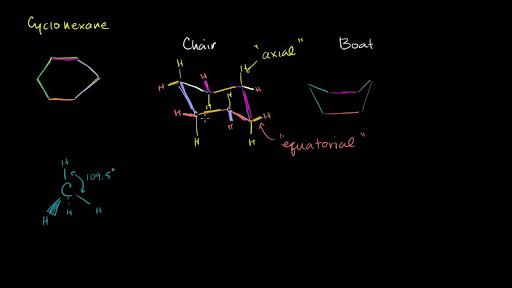 Cyclohexane
Chair
"axial"
Boat
H
H
H
H
H
H
H
H
H
H
H
H
"equatorial"
H
109.5°
C
H
H
H